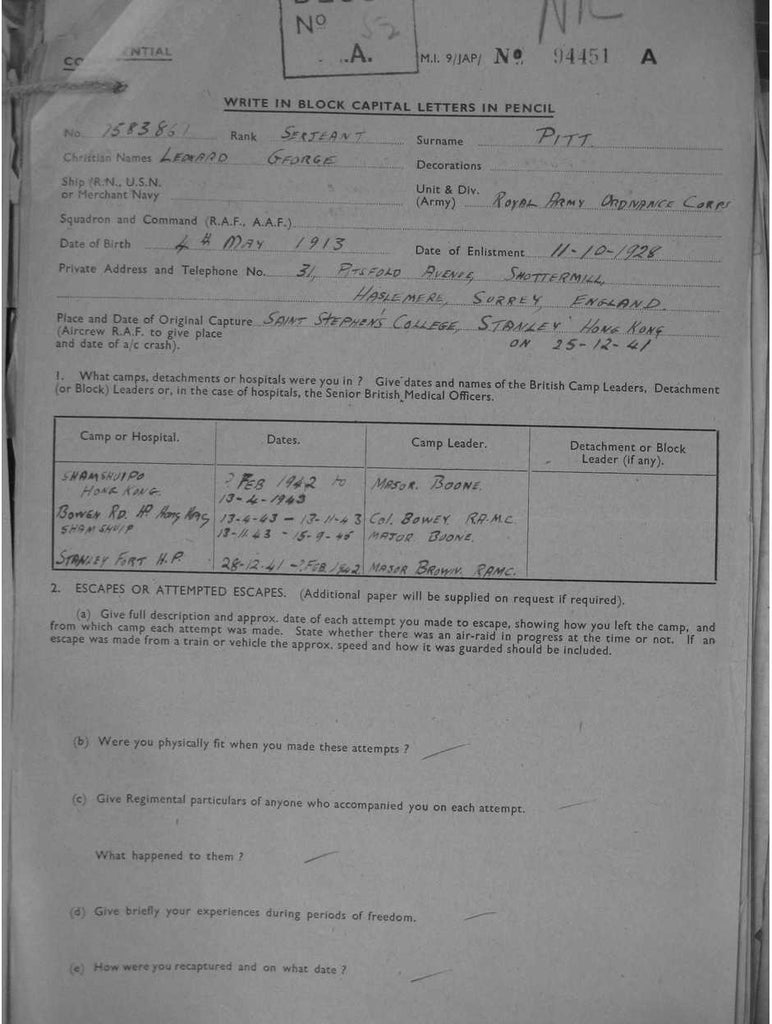 No
A.
NTIAL
M.I. 9/JAP/ No. 94451 A
WRITE IN BLOCK CAPITAL LETTERS IN PENCIL
No. 7583861 Rank SERJEANT Surname PITT
Christian Names LEONARD GEORGE Decorations
Ship (R.N., U.S.N. or Merchant Navy
Unit & Div. (Army) ROYAL ARMY ORDNANCE CORPS
Squadron and Command (R.A.F., A.A.F.)
Date of Birth 4th MAY 1913 Date of Enlistment 11-10-1928
Private Address and Telephone No. 31, PITSFOLD AVENUE, SHOTTERMILL,
HASLEMERE, SURREY, ENGLAND.
Place and Date of Original Capture SAINT STEPHEN'S COLLEGE, STANLEY HONG KONG
(Aircrew R.A.F. to give place
and date of a/c crash). ON 25-12-41
1. What camps, detachments or hospitals were you in ? Give dates and names of the British Camp Leaders, Detachment
(or Block) Leaders or, in the case of hospitals, the Senior British Medical Officers.
Camp or Hospital. Dates. Camp Leader. Detachment or Block
Leader (if any).
SHAMSHUIPO ? FEB 1942 to MAJOR. BOONE.
HONG KONG. 13-4-1943
BOWEN RD. HP HONG KONG 13-4-43 - 13-11-43 Col. BOWEY R.A.M.C.
SHAMSHUIP 13-11-43 - 15-9-45 MAJOR BOONE.
STANLEY FORT H.P. 28-12-41 - ? FEB 1942 MAJOR BROWN. RAMC.
2. ESCAPES OR ATTEMPTED ESCAPES. (Additional paper will be supplied on request if required).
(a) Give full description and approx. date of each attempt you made to escape, showing how you left the camp, and
from which camp each attempt was made. State whether there was an air-raid in progress at the time or not. If an
escape was made from a train or vehicle the approx. speed and how it was guarded should be included.
(b) Were you physically fit when you made these attempts ?
(c) Give Regimental particulars of anyone who accompanied you on each attempt.
What happened to them ?
(d) Give briefly your experiences during periods of freedom.
(e) How were you recaptured and on what date ?